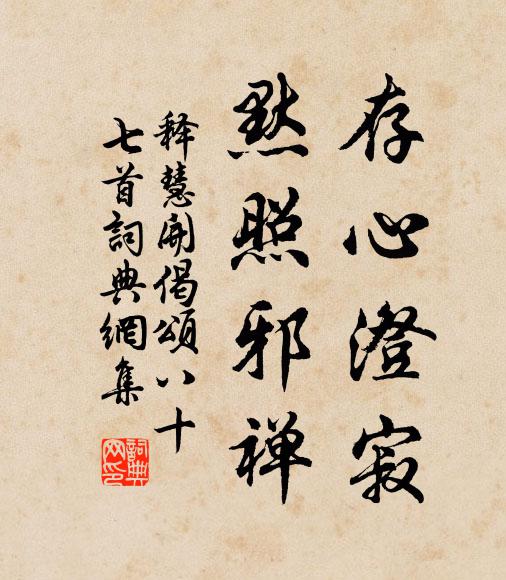 存心澄寂
默照邪禅
释慧开偈颂八十
七首詞典網集
詞典
网印